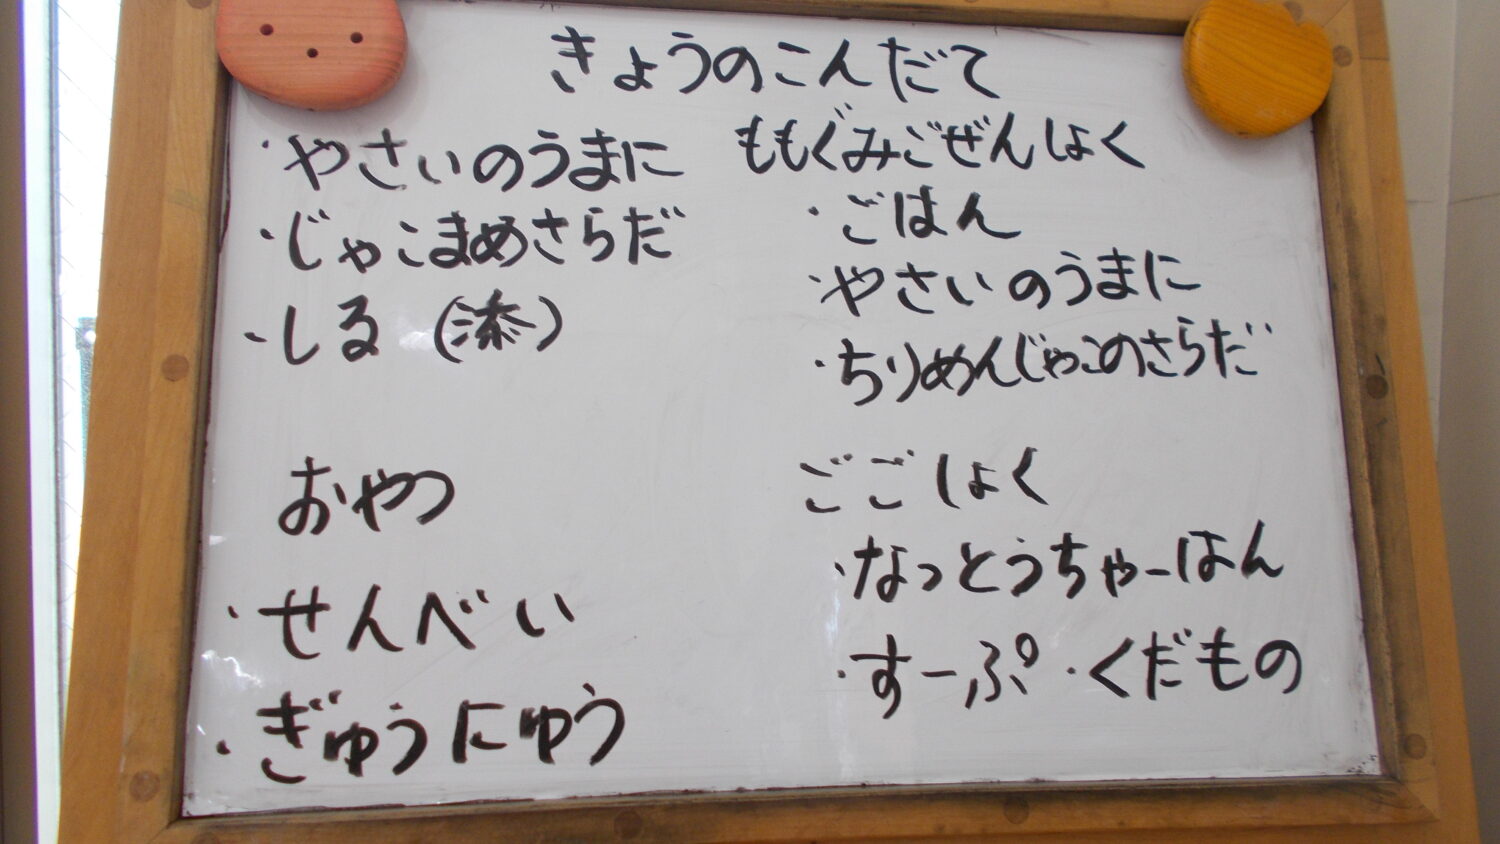 きょうのこんだて
・やさいのうまに
・じゃこまめさらだ
・しる (添)
おやつ
・せんべい
・ぎゅうにゅう
ももぐみごぜんしょく
・ごはん
・やさいのうまに
・ちりめんじゃこのさらだ
ごごしょく
・なっとうちゃーはん
・すーぷ・くだもの